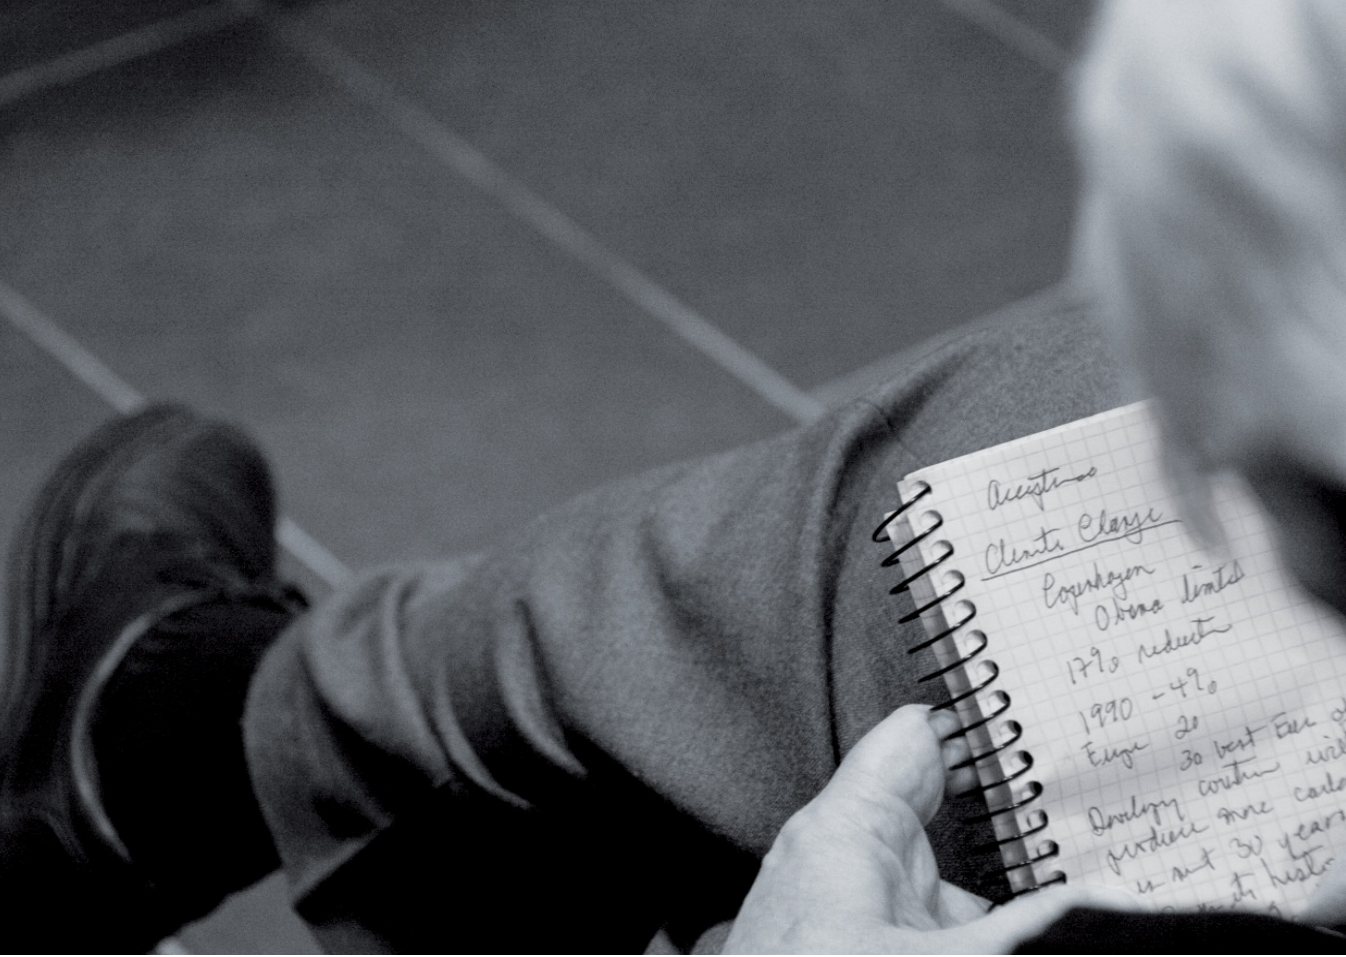 Climate Change
Copenhagen
Obama limited
17% reduction
1990 - 4%
Europe 20
30 best Euro
Developing countries will
produce more carbon
in next 30 years